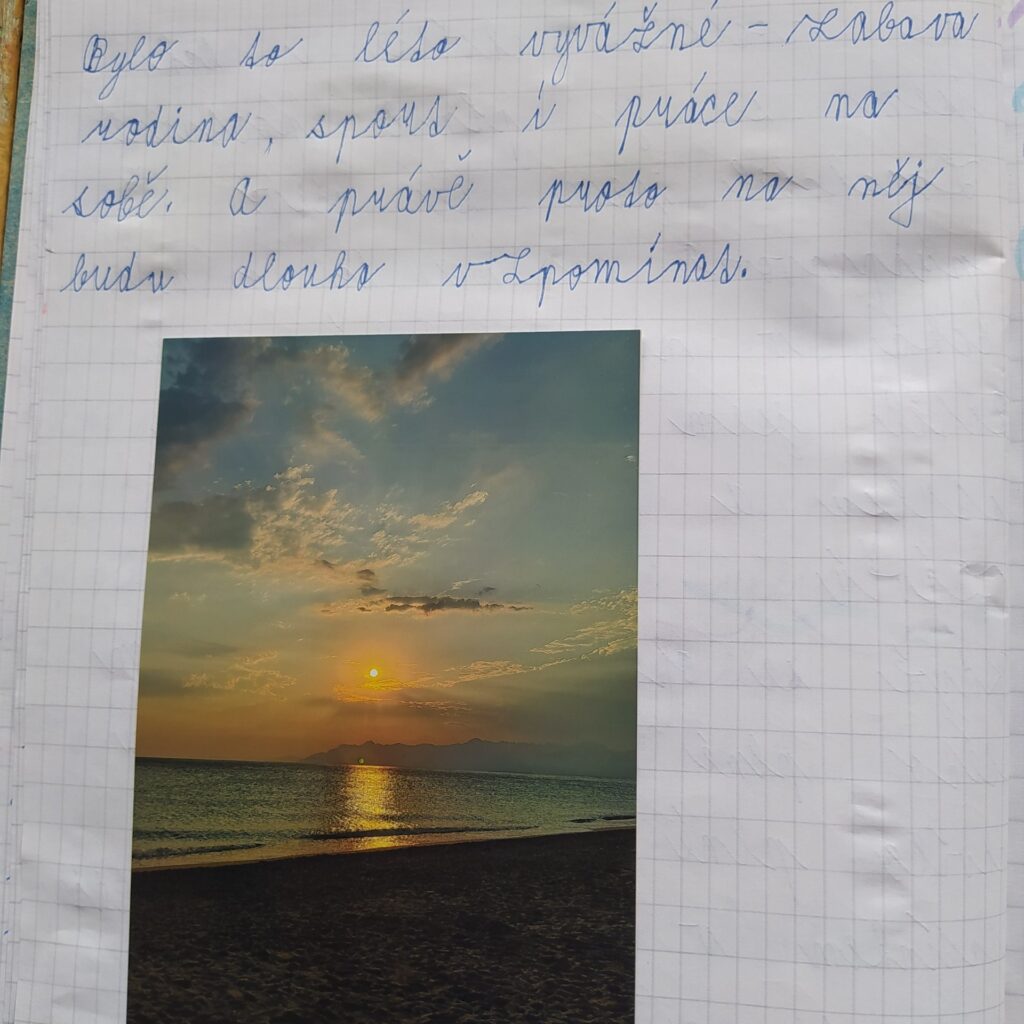 Bylo to léto vyvážné - zabava
rodina, sport i práce na
sobě. A právě proto na něj
budu dlouho vzpomínat.